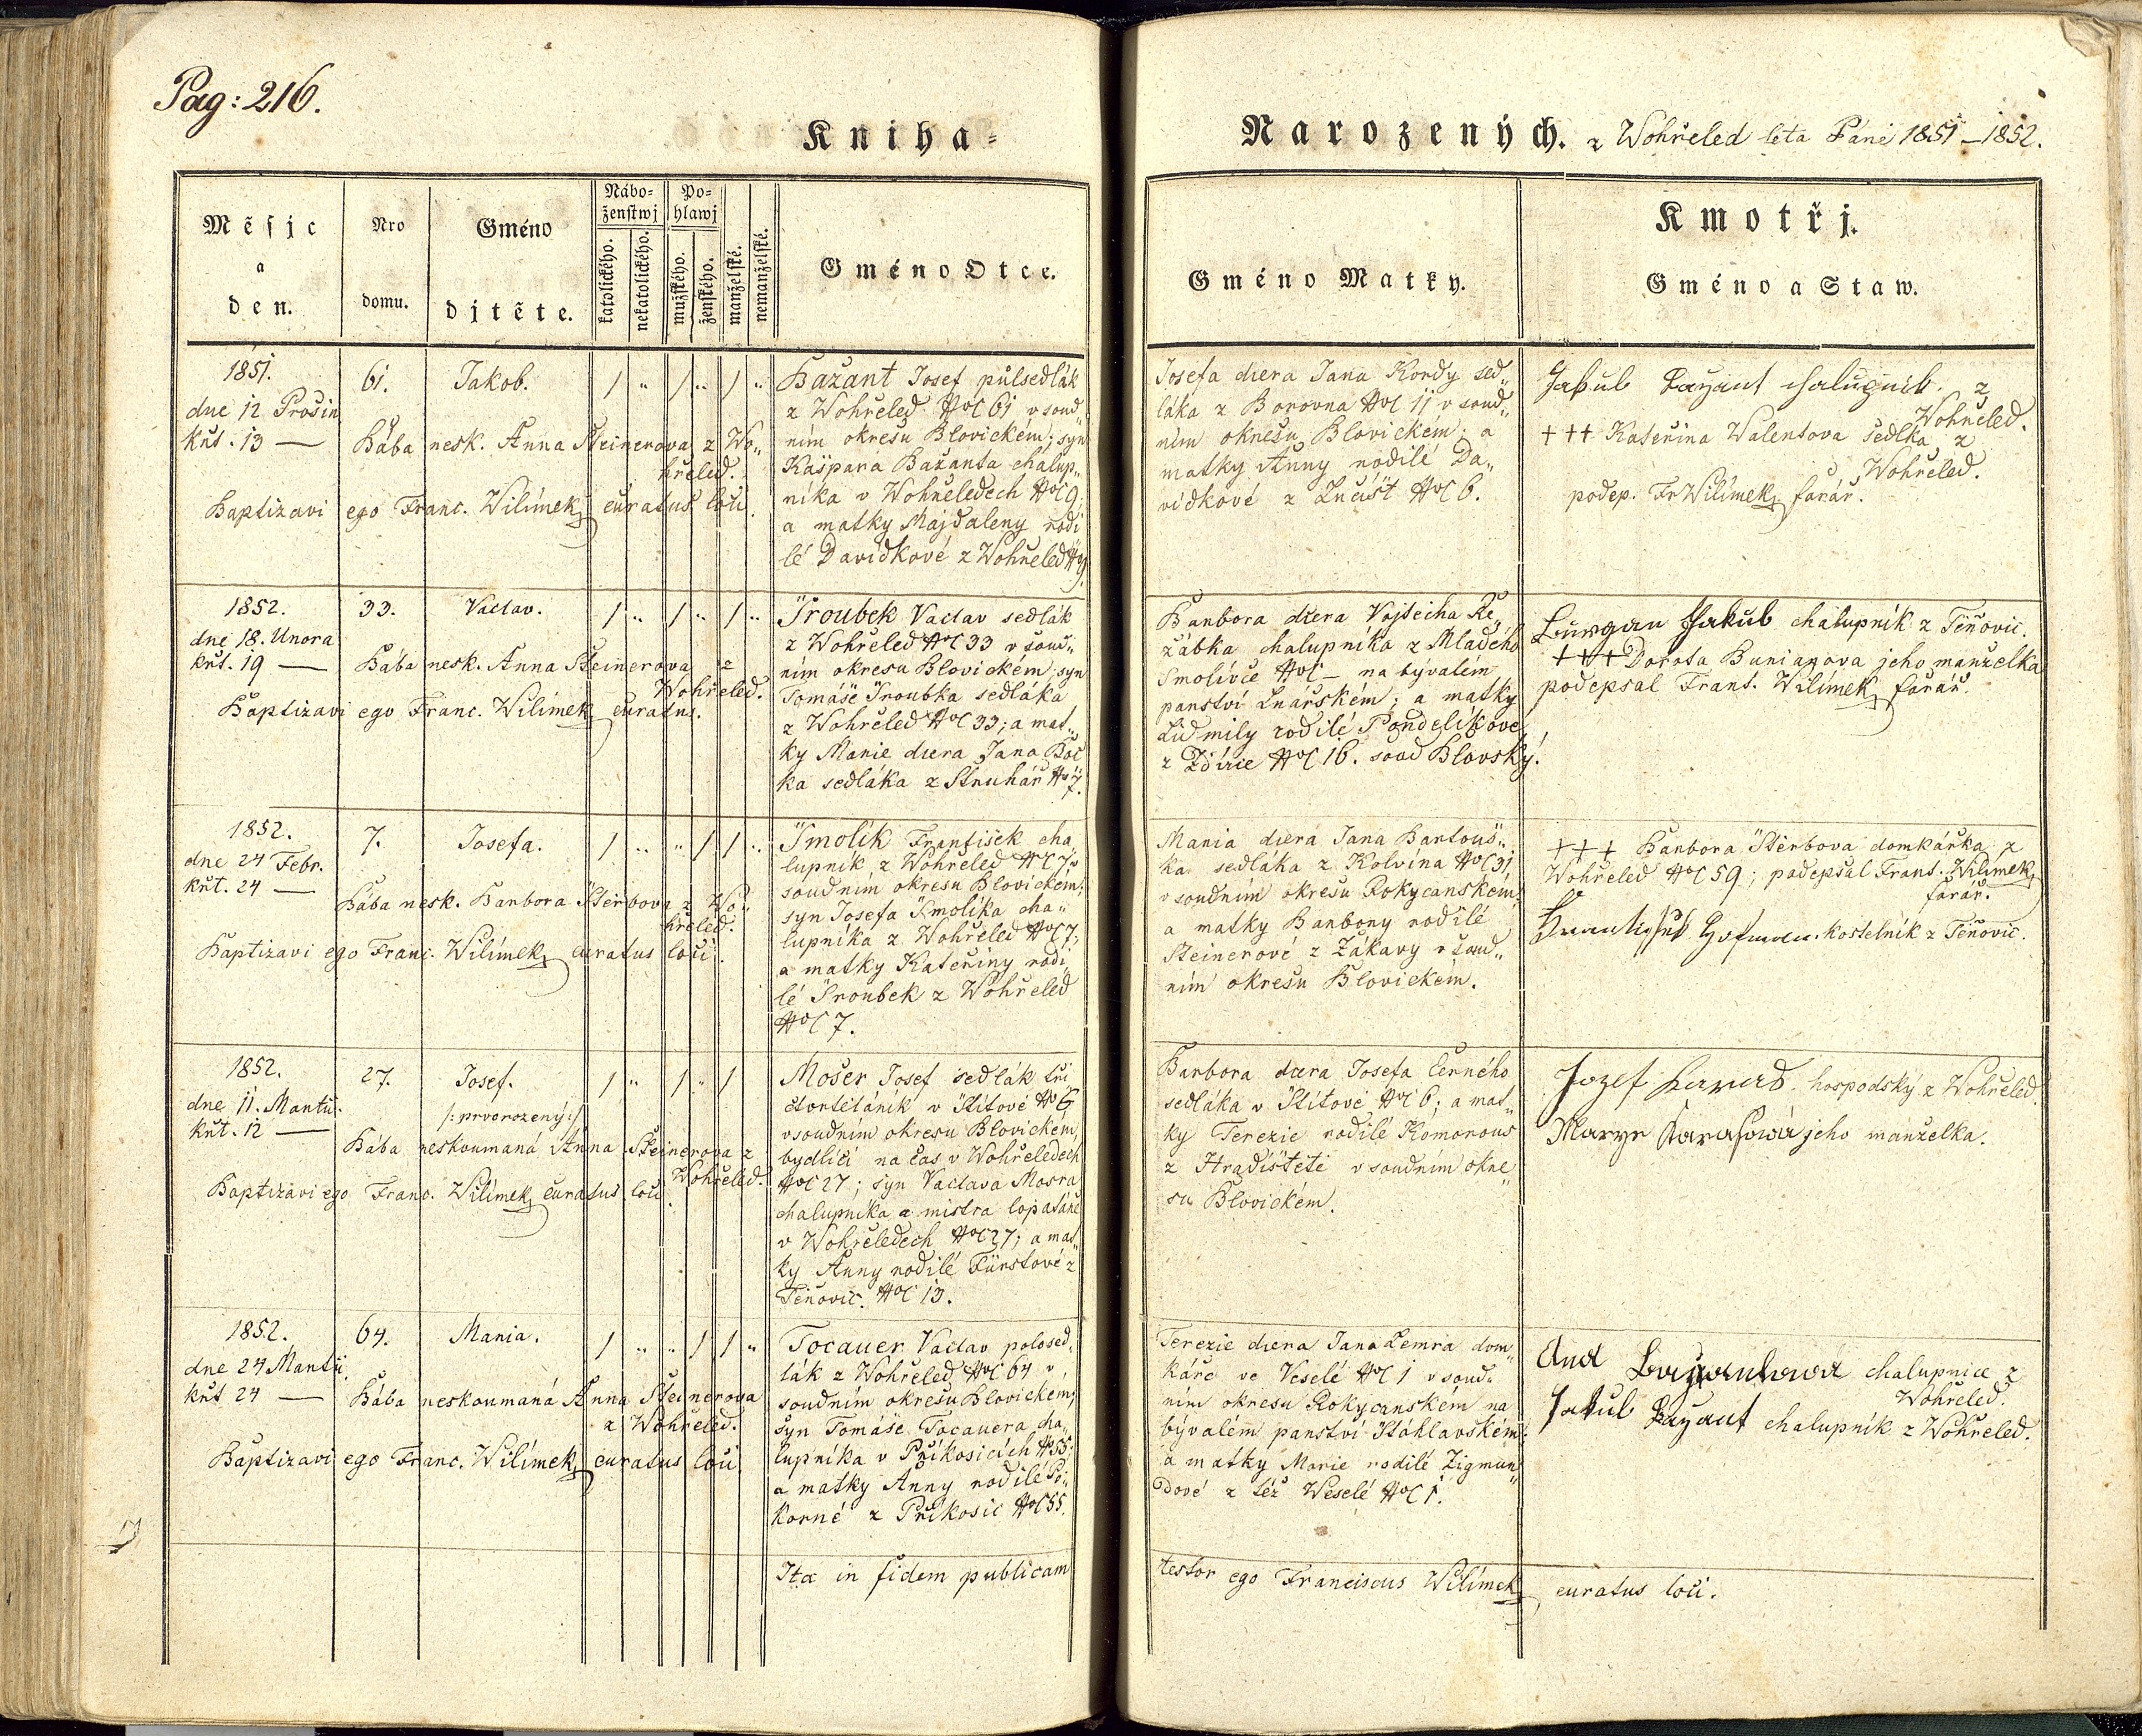 Pag: 216.
Kniha=
Narozených. z Wohřeled leta Páně 1851–1852.
Měsjc a den.
Nro domu.
Gméno djtěte.
Nábo=
ženstwj
katolického.
nekatolického.
Po=
hlawj
mužského.
ženského.
manželské.
nemanželské.
Gméno Otce.
Gméno Matky.
Kmotřj.
Gméno a Staw.
1851.
dne 12 Prosin
křt. 13 —
61.
Jakob.
Bába nesk. Anna Steinerova z Wo„
hřeled.
Baptizavi ego Franc. Wilímek curatus loci.
Bažant Josef půlsedlák
z Wohřeled NoC 61 v soud„
ním okresu Blovickém; syn
Kašpara Bažanta chalup„
níka v Wohřeledech NoC 9,
a matky Majdaleny rodi
lé Davídkové z Wohřeled N 9.
Josefa dcera Jana Kordy sed„
láka z Borovna NoC 11 v soud„
ním okresu Blovickém; a
matky Anny rodilé Da„
vídkové z Lučišt NoC 6.
Jakub Bažant chalupnik z
Wohřeled.
+++ Kateřina Walentova sedlka z
Wohřeled.
podep. Fr Wilímek farář.
1852.
dne 18. Unora
křt. 19 —
33.
Vaclav.
Bába nesk. Anna Steinerova z
Wohřeled.
Baptizavi ego Franc. Wilímek curatus.
Troubek Vaclav sedlák
z Wohřeled NoC 33 v soud„
ním okresu Blovickém; syn
Tomáše Troubka sedláka
z Wohřeled NoC 33; a mat„
ky Marie dcera Jana Boč
ka sedláka z Struhař N 7.
Barbora dcera Vojtěcha Re„
žábka chalupníka z Mladého
Smolivce NoC — na bývalém
panství Lnářském; a matky
Lidmily rodilé Pondelíkove
z Ždírce NoC 16. soud Blovský.
Jakub chalupník z Těňovic.
+++ Dorota jeho manželka
podepsal Frant. Wilímek farář.
1852.
dne 24 Febr.
křt. 24 —
7.
Josefa.
Bába nesk. Barbora Štěrbova z Wo„
hřeled.
Baptizavi ego Franc. Wilímek curatus loci.
Smolík František cha„
lupník z Wohřeled NoC 7 v
soudním okresu Blovickém;
syn Josefa Smolíka cha„
lupníka z Wohřeled NoC 7;
a matky Kateřiny rodi
lé Troubek z Wohřeled
NoC 7.
Maria dcera Jana Bartouš„
ka sedláka z Kolvína NoC 31
v soudním okresu Rokycanském;
a matky Barbory rodilé
Steinerové z Žákavy v soud„
ním okresu Blovickém.
+++ Barbora Štěrbova domkářka z
Wohřeled NoC 59; podepsal Frant. Wilímek
farář.
Frantisek Hofman kostelník z Těňovic.
1852.
dne 11. Martii.
křt. 12 —
27.
Josef.
/: prvorozený :/
Bába neskoumaná Anna Steinerova z
Wohřeled.
Baptizavi ego Franc. Wilímek curatus loci.
Mošer Josef sedlák
čtvrtláník v Štítově N 6
v soudním okresu Blovickém,
bydlící na čas v Wohřeledech
NoC 27; syn Vaclava Mosra
chalupníka a mistra lopatáře
v Wohřeledech NoC 27; a mat„
ky Anny rodilé Fürstové z
Těňovic. NoC 13.
Barbora dcera Josefa Černého
sedláka v Štítově NoC 6; a mat„
ky Terezie rodilé Komorous
z Hradištětě v soudním okre„
su Blovickém.
Jozef hospodský z Wohřeled.
Marye jeho manželka.
1852.
dne 24 Martii
křt 24 —
64.
Maria.
Bába neskoumaná Anna Steinerova
z Wohřeled.
Baptizavi ego Franc. Wilímek curatus loci
Tocauer Vaclav polosed„
lák z Wohřeled NoC 64 v
soudním okresu Blovickém;
syn Tomáše Tocauera cha„
lupníka v Příkosicích N 55;
a matky Anny rodilé Po„
korné z Příkosic NoC 55.
Terezie dcera Jana Lemra dom„
káře ve Veselé NoC 1 v soud„
ním okresu Rokycanském na
bývalém panství Štáhlavském;
a matky Marie rodilé Zigmun„
dové z též Weselé NoC 1.
Ana Bažantová chalupnice z
Wohřeled.
Jakub Bažant chalupník z Wohřeled.
Ita in fidem publicam testor ego Franciscus Wilímek curatus loci.